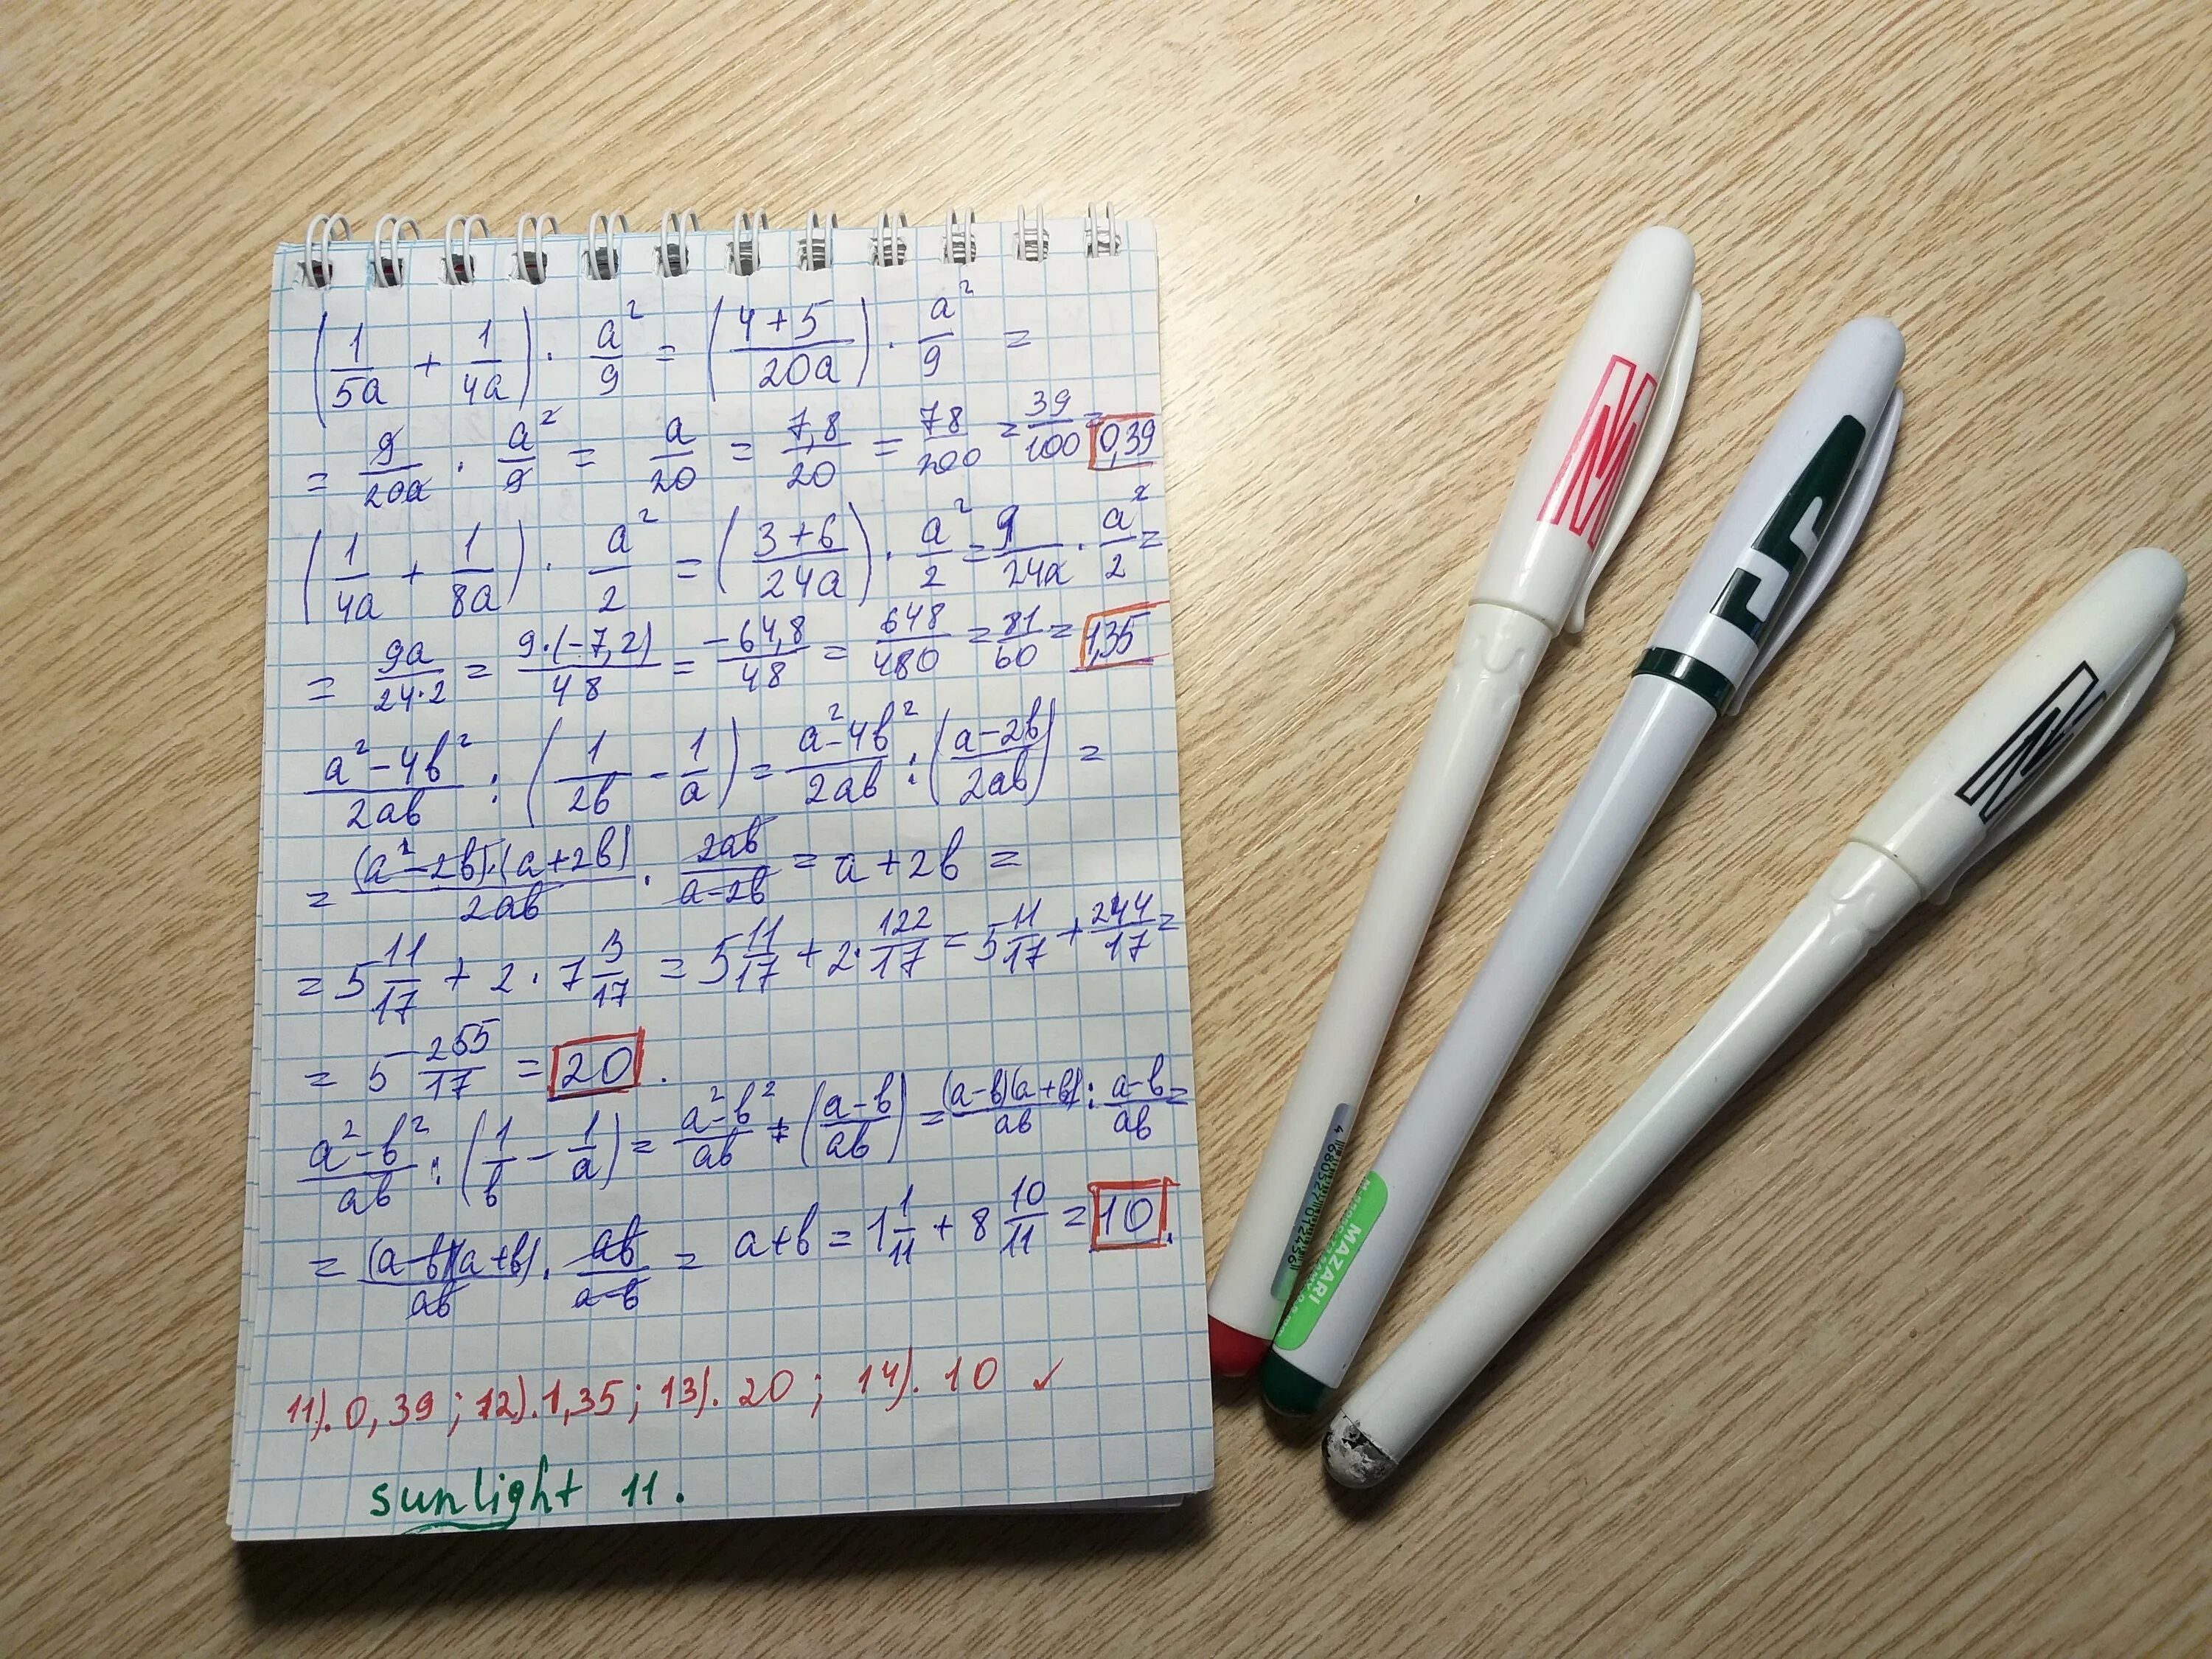 (1/5a + 1/4a) · a²/9 = (4+5/20a) · a²/9 =
= 9/20a · a²/9 = a/20 = 7,8/20 = 78/200 = 39/100 = 0,39
(1/4a + 1/8a) · a²/2 = (3+6/24a) · a²/2 = 9/24a · a²/2 =
= 9a/24·2 = 9·(-7,2)/48 = -64,8/48 = 648/480 = 81/60 = 1,35
a²-4b²/2ab : (1/2b - 1/a) = a²-4b²/2ab : (a-2b/2ab) =
= (a²-2b)·(a+2b)/2ab · 2ab/a-2b = a+2b =
= 5 11/17 + 2 · 7 3/17 = 5 11/17 + 2 · 122/17 = 5 11/17 + 244/17 =
= 5 255/17 = 20.
a²-b²/ab : (1/b - 1/a) = a²-b²/ab : (a-b/ab) = (a-b)(a+b)/ab : a-b/ab =
= (a-b)(a+b)/ab · ab/a-b = a+b = 1 1/11 + 8 10/11 = 10.
11). 0,39; 12). 1,35; 13). 20; 14). 10 ✓
sunlight 11.
MAZARI